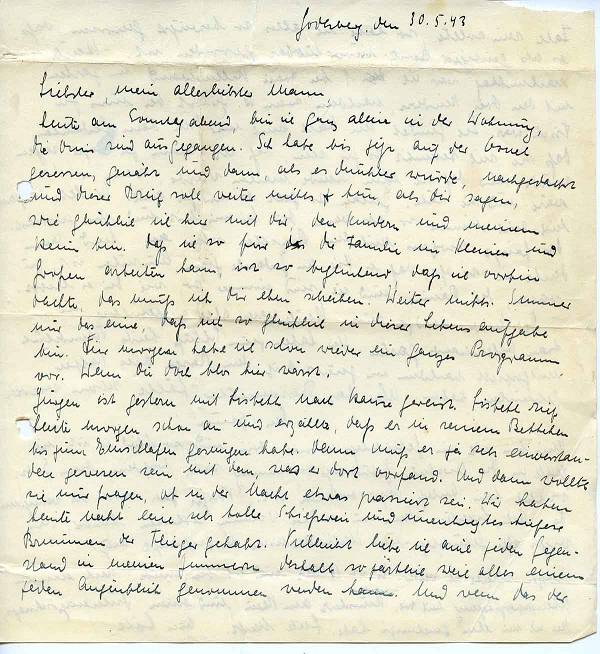 Godesberg, den 30.5.43
Liebster, mein allerliebster Mann,
heute am Sonntagabend, bin ich ganz allein in der Wohnung,
die sind ausgegangen. Ich habe bis jetzt auf der
gesessen, genäht und dann, als es dunkler wurde, nachgedacht
und dieser Brief soll weiter nichts tun, als dir sagen,
wie glücklich ich hier mit dir, den Kindern und meinem
Heim bin. Daß ich so für die Familie im Kleinen und
Großen arbeiten kann, ist so beglückend, daß ich vorhin
dachte, das muß ich dir eben schreiben. Weiter nichts. Immer
nur das eine, daß ich so glücklich in dieser Lebensaufgabe
bin. Für morgen habe ich schon wieder ein ganzes Programm
vor. Wenn Du doch blos hier wärst.
Jürgen ist gestern mit Lisbeth nach Hause gereist. Lisbeth rief
heute morgen schon an und erzählte, daß er in seinem Bettchen
bis zum Einschlafen gesungen habe. Dann muß er ja sehr einverstan-
den gewesen sein mit dem, was er dort vorfand. Und dann wollte
sie nur fragen, ob in der Nacht etwas passiert sei. Wir haben
heute Nacht eine sehr tolle Schießerei und
Brummen der Flieger gehabt. Vielleicht liebe ich jeden Gegen-
stand in meinen Zimmern deshalb so zärtlich weil alles einem
jeden Augenblick genommen werden kann. Und wenn das der